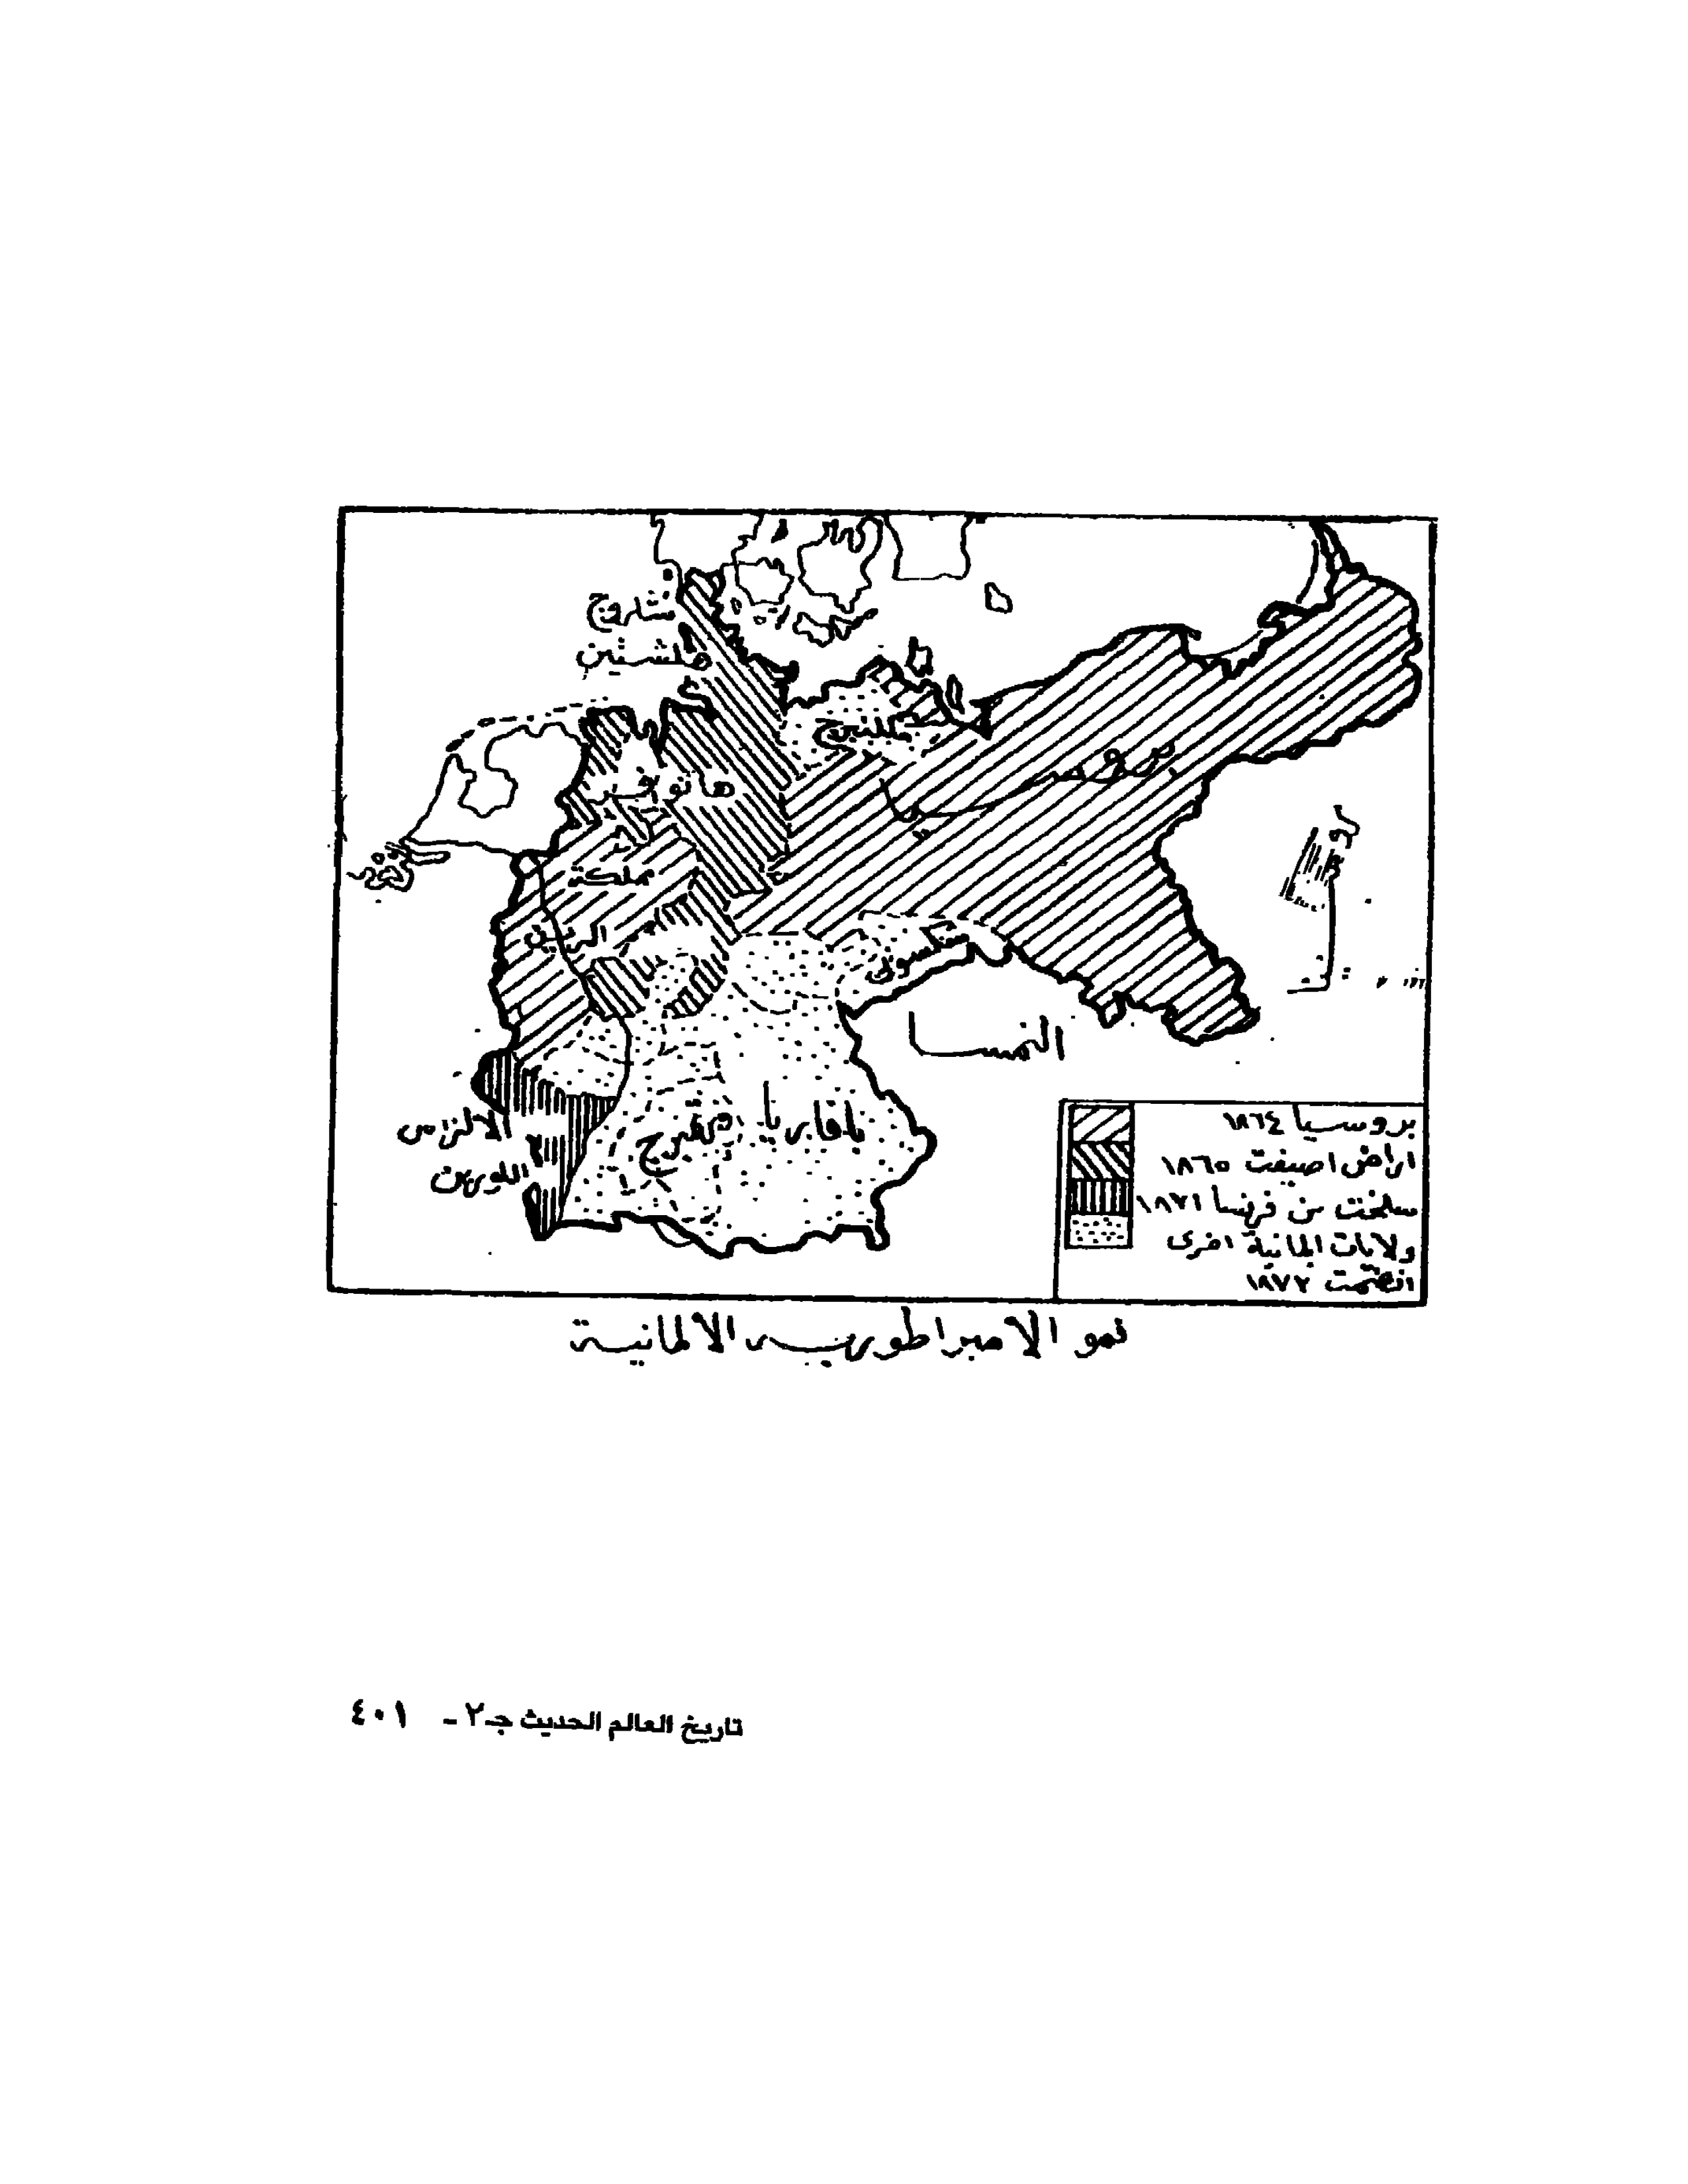 شلزوج
هلشتين
مكلنبرج
هانوفر
بروسيا
مملكة
الرين
سكسونيا
النمسا
بافاريا
الالزاس
اللورين
بروسيا ١٨٦٤
اراض اضيفت ١٨٦٥
سلخت من فرنسا ١٨٧١
ولايات المانية اخرى
انضمت ١٨٧٢
نمو الامبراطورية الالمانية
تاريخ العالم الحديث جـ٢ - ٤٠١